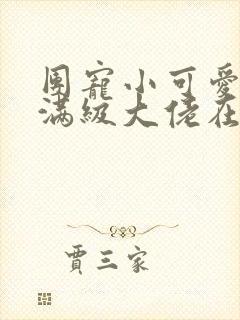 團寵小可愛
滿級大佬在
賈三家